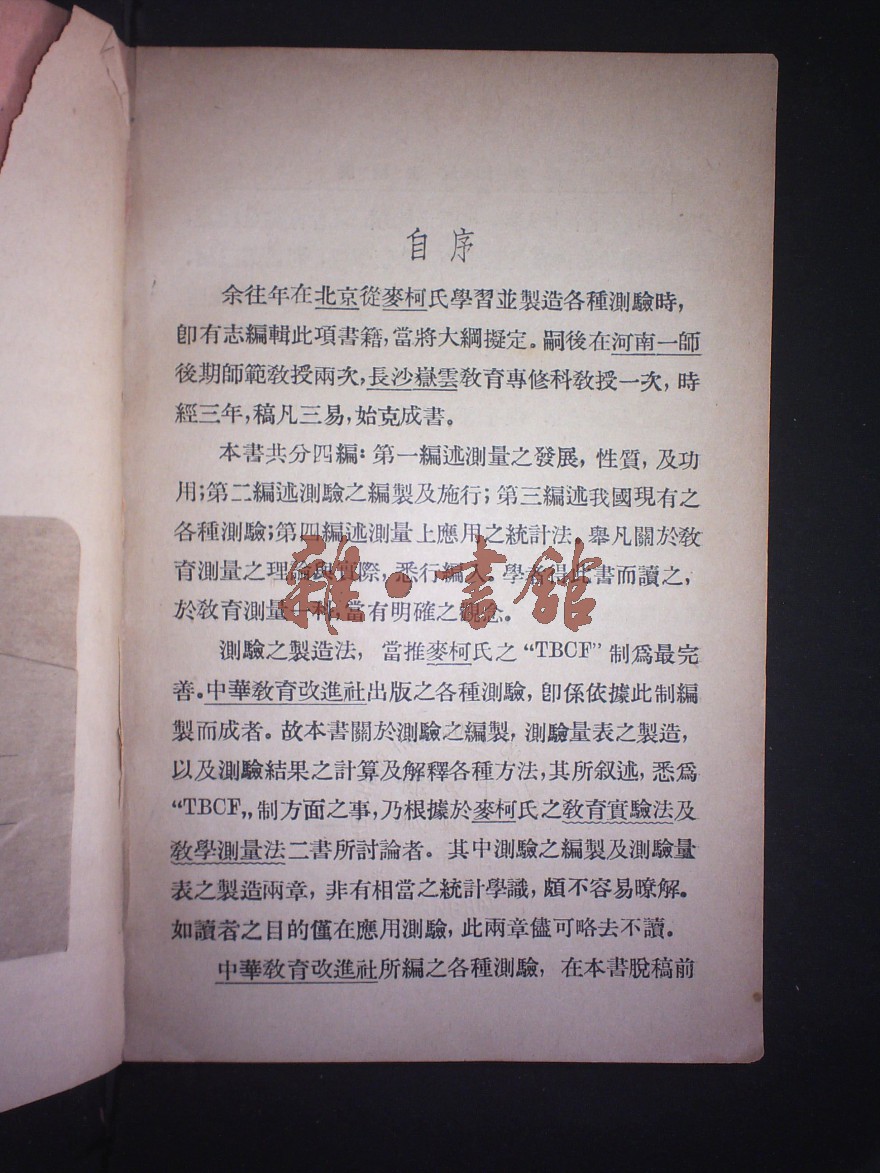 自序
余往年在北京從麥柯氏學習並製造各種測驗時,
卽有志編輯此項書籍,當將大綱擬定。嗣後在河南一師
後期師範敎授兩次,長沙嶽雲敎育專修科敎授一次,時
經三年,稿凡三易,始克成書。
本書共分四編:第一編述測量之發展,性質,及功
用;第二編述測驗之編製及施行;第三編述我國現有之
各種測驗;第四編述測量上應用之統計法。舉凡關於敎
育測量之理論與實際,悉行編入。學者得此書而讀之,
於敎育測量一科,當有明確之觀念。
測驗之製造法,當推麥柯氏之“TBCF”制爲最完
善。中華敎育改進社出版之各種測驗,卽係依據此制編
製而成者。故本書關於測驗之編製,測驗量表之製造,
以及測驗結果之計算及解釋各種方法,其所叙述,悉爲
“TBCF„制方面之事,乃根據於麥柯氏之敎育實驗法及
敎學測量法二書所討論者。其中測驗之編製及測驗量
表之製造兩章,非有相當之統計學識,頗不容易暸解。
如讀者之目的僅在應用測驗,此兩章儘可略去不讀。
中華敎育改進社所編之各種測驗,在本書脫稿前
雜·書館